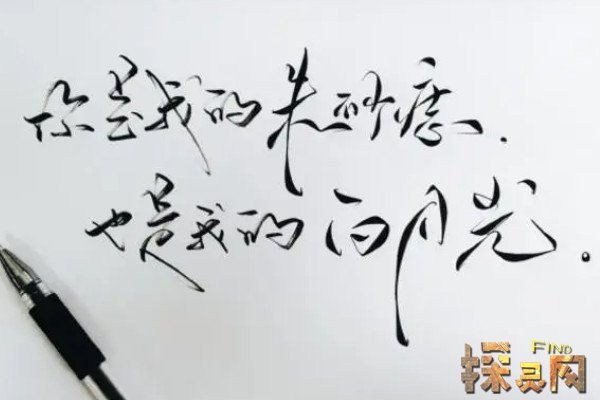 你是我的朱砂痣.
也是我的白月光.
FIND
探灵网